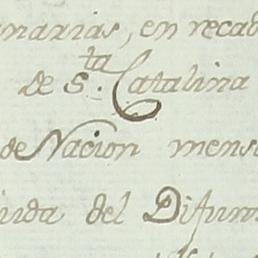 narias, en recad
de S.ta Catalina
de Nacion mens
iuda del Difun